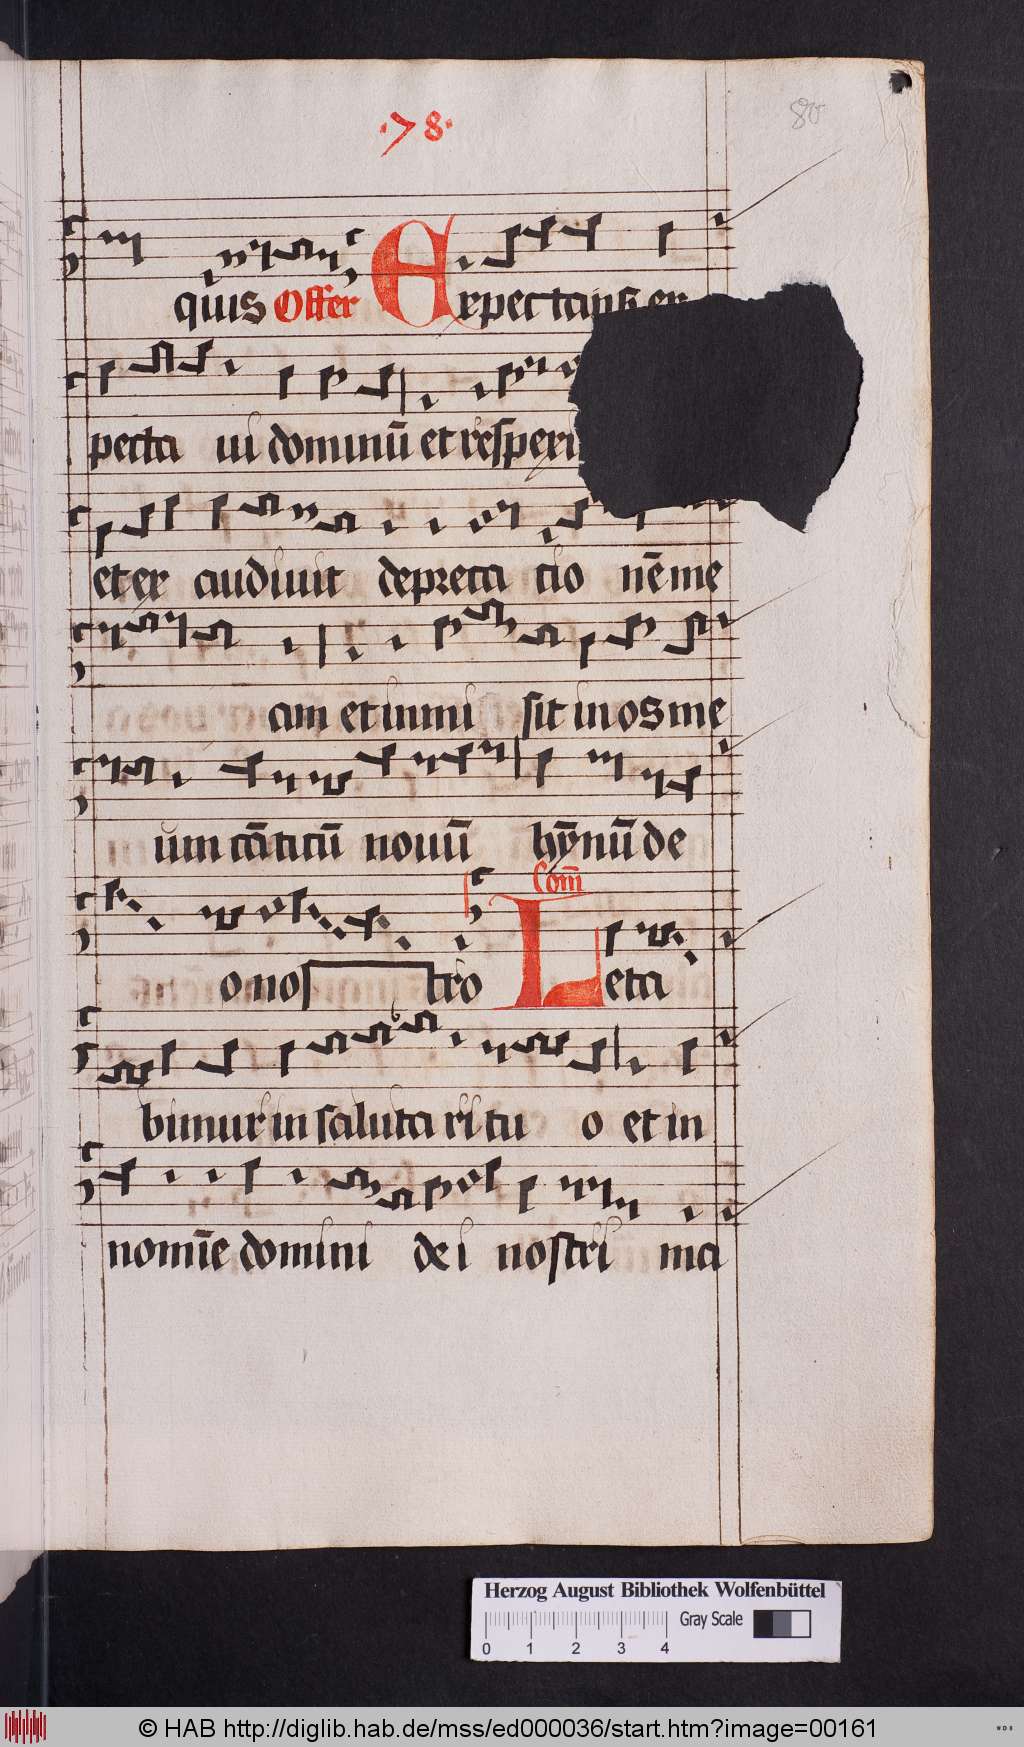 ·78·
80
quis Offer Expectans ex
pecta ui dominū et respexi
et ex audiuit depreca tio nē me
am et inmi sit in os me
um cāticū nouū hȳnū de
Com̄
o nos tro Leta
bimur in saluta ri tu o et in
nomīe domini de i nostri ma
Herzog August Bibliothek Wolfenbüttel
Gray Scale
0 1 2 3 4
© HAB http://diglib.hab.de/mss/ed000036/start.htm?image=00161